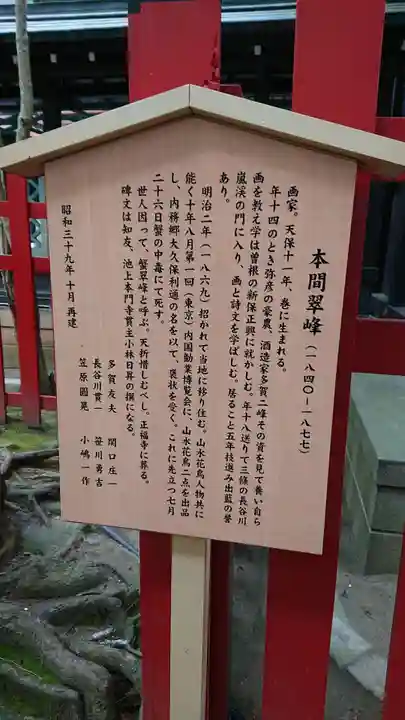 本間翠峰(一八四〇ー一八七七)
画家。天保十一年、巻に生まれる。
年十四のとき弥彦の豪農、酒造家多賀二峰その資を見て養い自ら
画を教え学は曽根の新保正興に就かしむ。年十八送りて三條の長谷川
嵐渓の門に入り、画と詩文を学ばしむ。居ること五年技進み出藍の誉
あり。
明治二年(一八六九)招かれて当地に移り住む。山水花鳥人物共に
能く十年八月第一回(東京)内国勧業博覧会に、山水花鳥二点を出品
し、内務郷大久保利通の名を以て、褒状を受く。これに先立つ七月
二十六日蟹の中毒にて死す。
世人因って、蟹翠峰と呼ぶ。夭折惜しむべし。正福寺に葬る。
碑文は知友、池上本門寺貫主小林日昇の撰になる。
昭和三十九年十月再建
多賀友夫 関口庄一
長谷川貫一 笹川勇吉
笠原圓晃 小嶋一作